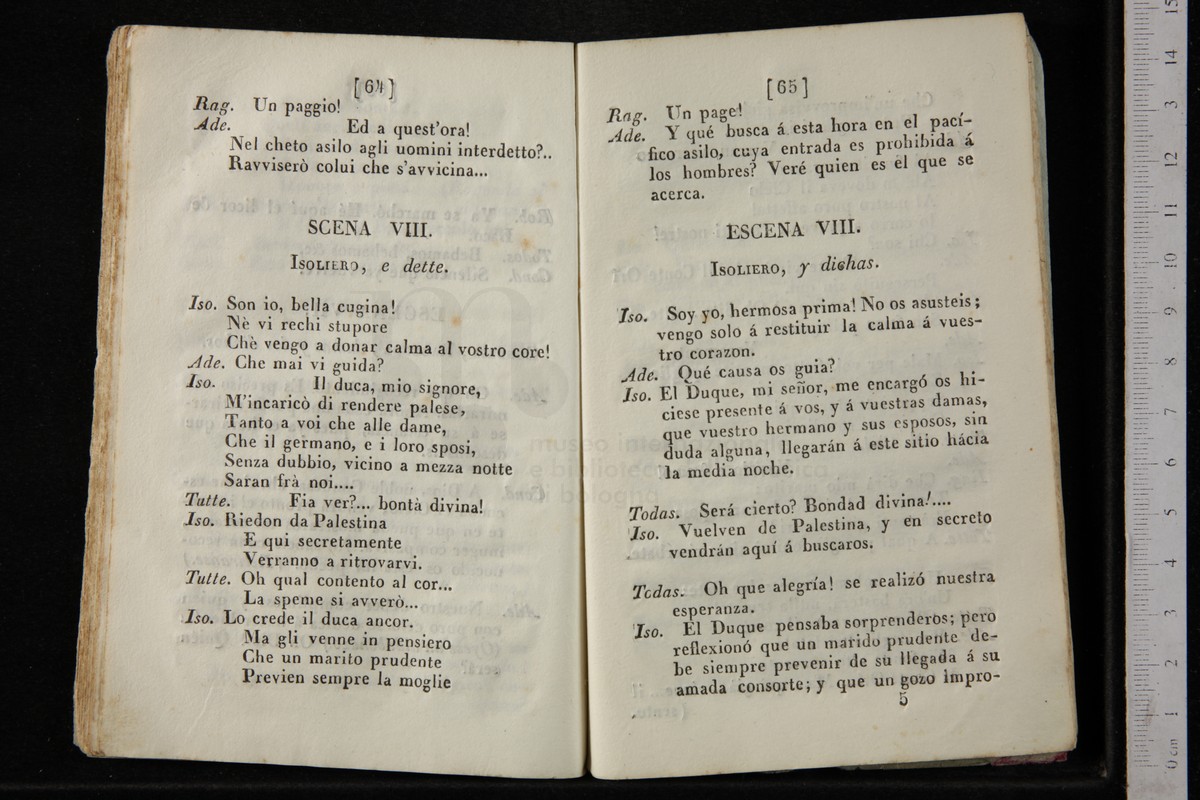 [64]
Rag. Un paggio!
Ade. Ed a quest'ora!
Nel cheto asilo agli uomini interdetto?..
Ravviserò colui che s'avvicina...
SCENA VIII.
Isoliero, e dette.
Iso. Son io, bella cugina!
Nè vi rechi stupore
Chè vengo a donar calma al vostro core!
Ade. Che mai vi guida?
Iso. Il duca, mio signore,
M'incaricò di rendere palese,
Tanto a voi che alle dame,
Che il germano, e i loro sposi,
Senza dubbio, vicino a mezza notte
Saran frà noi....
Tutte. Fia ver?... bontà divina!
Iso. Riedon da Palestina
E qui secretamente
Verranno a ritrovarvi.
Tutte. Oh qual contento al cor...
La speme si avverò...
Iso. Lo crede il duca ancor.
Ma gli venne in pensiero
Che un marito prudente
Previen sempre la moglie
[65]
Rag. Un page!
Ade. Y qué busca á esta hora en el pací-
fico asilo, cuya entrada es prohibida á
los hombres? Veré quien es el que se
acerca.
ESCENA VIII.
Isoliero, y dichas.
Iso. Soy yo, hermosa prima! No os asusteis;
vengo solo á restituir la calma á vues-
tro corazon.
Ade. Qué causa os guia?
Iso. El Duque, mi señor, me encargó os hi-
ciese presente á vos, y á vuestras damas,
que vuestro hermano y sus esposos, sin
duda alguna, llegarán á este sitio hácia
la media noche.
Todas. Será cierto? Bondad divina!....
Iso. Vuelven de Palestina, y en secreto
vendrán aquí á buscaros.
Todas. Oh que alegría! se realizó nuestra
esperanza.
Iso. El Duque pensaba sorprenderos; pero
reflexionó que un marido prudente de-
be siempre prevenir de su llegada á su
amada consorte; y que un gozo impro-
5
museo internazionale
e biblioteca della musica
di bologna
0 cm 1 2 3 4 5 6 7 8 9 10 11 12 3 14 15